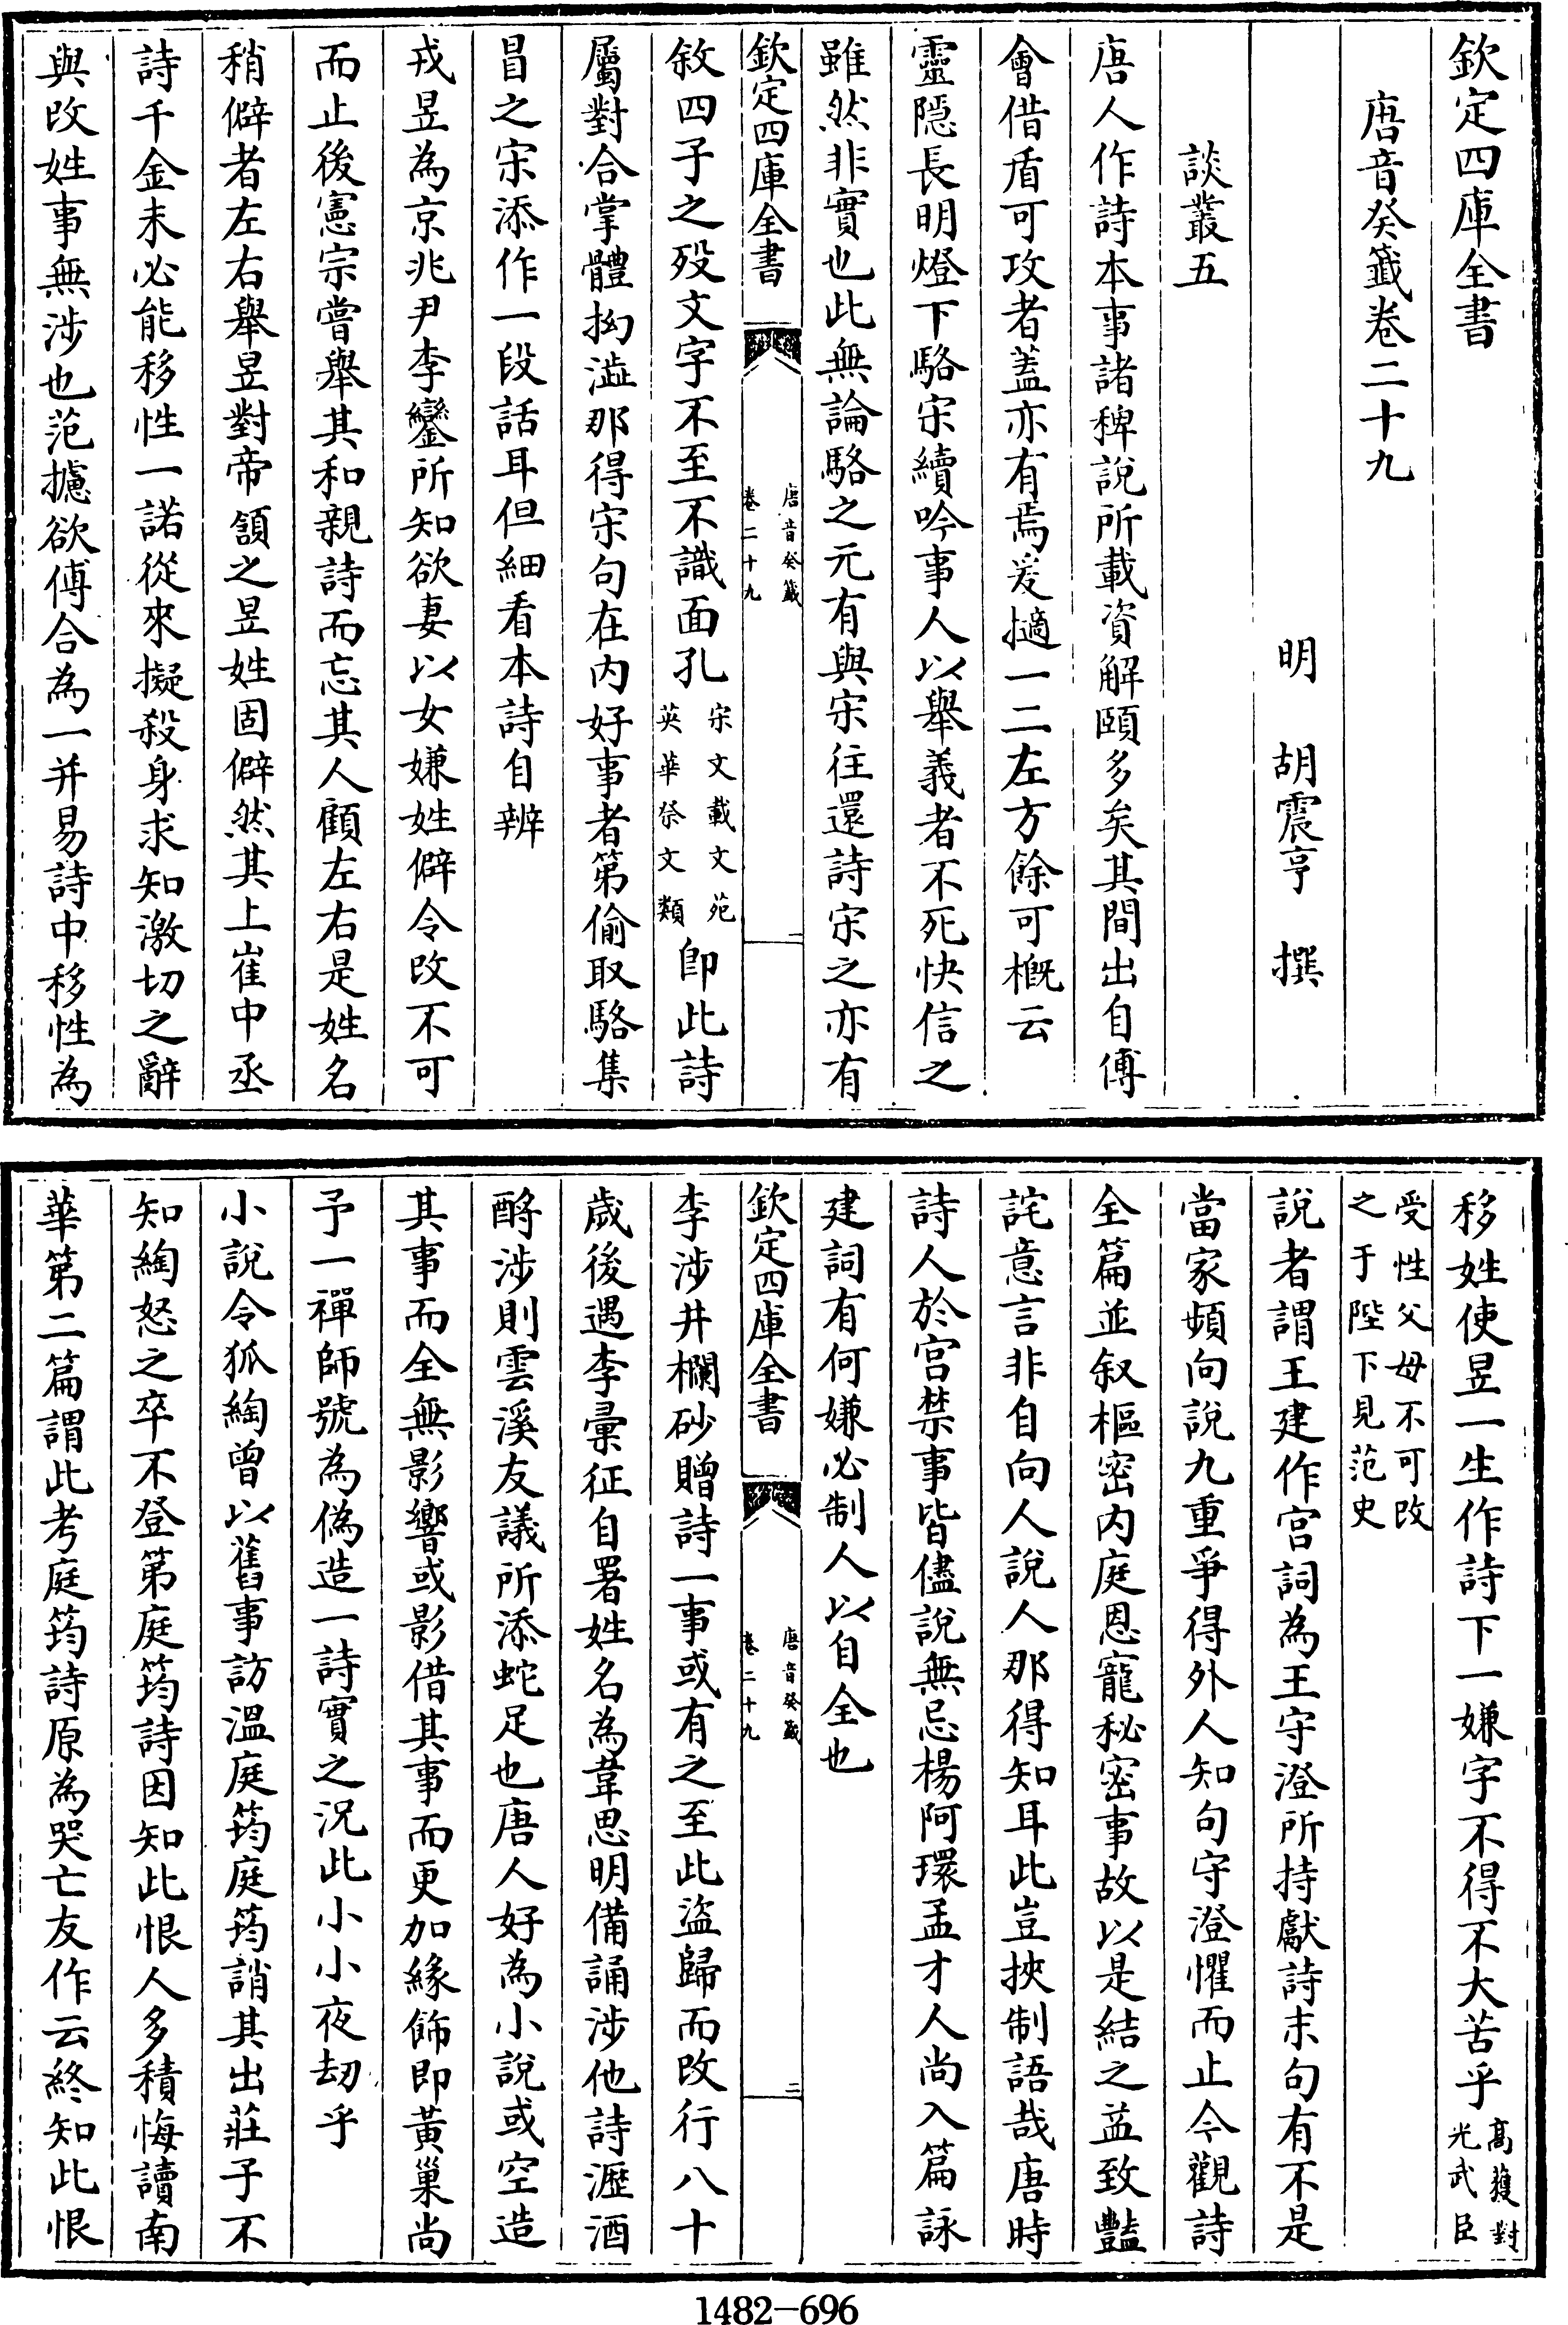 欽定四庫全書
唐音癸籤卷二十九
明 胡震亨 撰
談叢五
唐人作詩本事諸稗說所載資解頤多矣其間出自傅
會借盾可攻者蓋亦有焉爰擿一二左方餘可概云
靈隱長明燈下駱宋續吟事人以舉義者不死快信之
雖然非實也此無論駱之元有與宋往還詩宋之亦有
欽定四庫全書
唐音癸籤
卷二十九
一
敘四子之歿文字不至不識面孔宋文載文苑
英華祭文類即此詩
屬對合掌體拗澁那得宋句在內好事者第偷取駱集
冒之宋添作一段話耳但細看本詩自辨
戎昱為京兆尹李鑾所知欲妻以女嫌姓僻令改不可
而止後憲宗嘗舉其和親詩而忘其人顧左右是姓名
稍僻者左右舉昱對帝頷之昱姓固僻然其上崔中丞
詩千金未必能移性一諾從來擬殺身求知激切之辭
與改姓事無涉也范攄欲傅合為一并易詩中移性為
移姓使昱一生作詩下一嫌字不得不大苦乎高獲對
光武臣
受性父母不可改
之于陛下見范史
說者謂王建作宮詞為王守澄所持獻詩末句有不是
當家頻向說九重爭得外人知句守澄懼而止今觀詩
全篇並叙樞密內庭恩寵秘密事故以是結之益致豔
詫意言非自向人說人那得知耳此豈挾制語哉唐時
詩人於宮禁事皆儘說無忌楊阿環孟才人尚入篇詠
建詞有何嫌必制人以自全也
欽定四庫全書
唐音癸籤
卷二十九
二
李涉井欄砂贈詩一事或有之至此盜歸而改行八十
歲後遇李彙征自署姓名為韋思明備誦涉他詩瀝酒
酹涉則雲溪友議所添蛇足也唐人好為小說或空造
其事而全無影響或影借其事而更加緣飾即黃巢尚
予一禪師號為偽造一詩實之況此小小夜刼乎
小說令狐綯曾以舊事訪溫庭筠庭筠誚其出莊子不
知綯怒之卒不登第庭筠詩因知此恨人多積悔讀南
華第二篇謂此考庭筠詩原為哭亡友作云終知此恨
1482—696